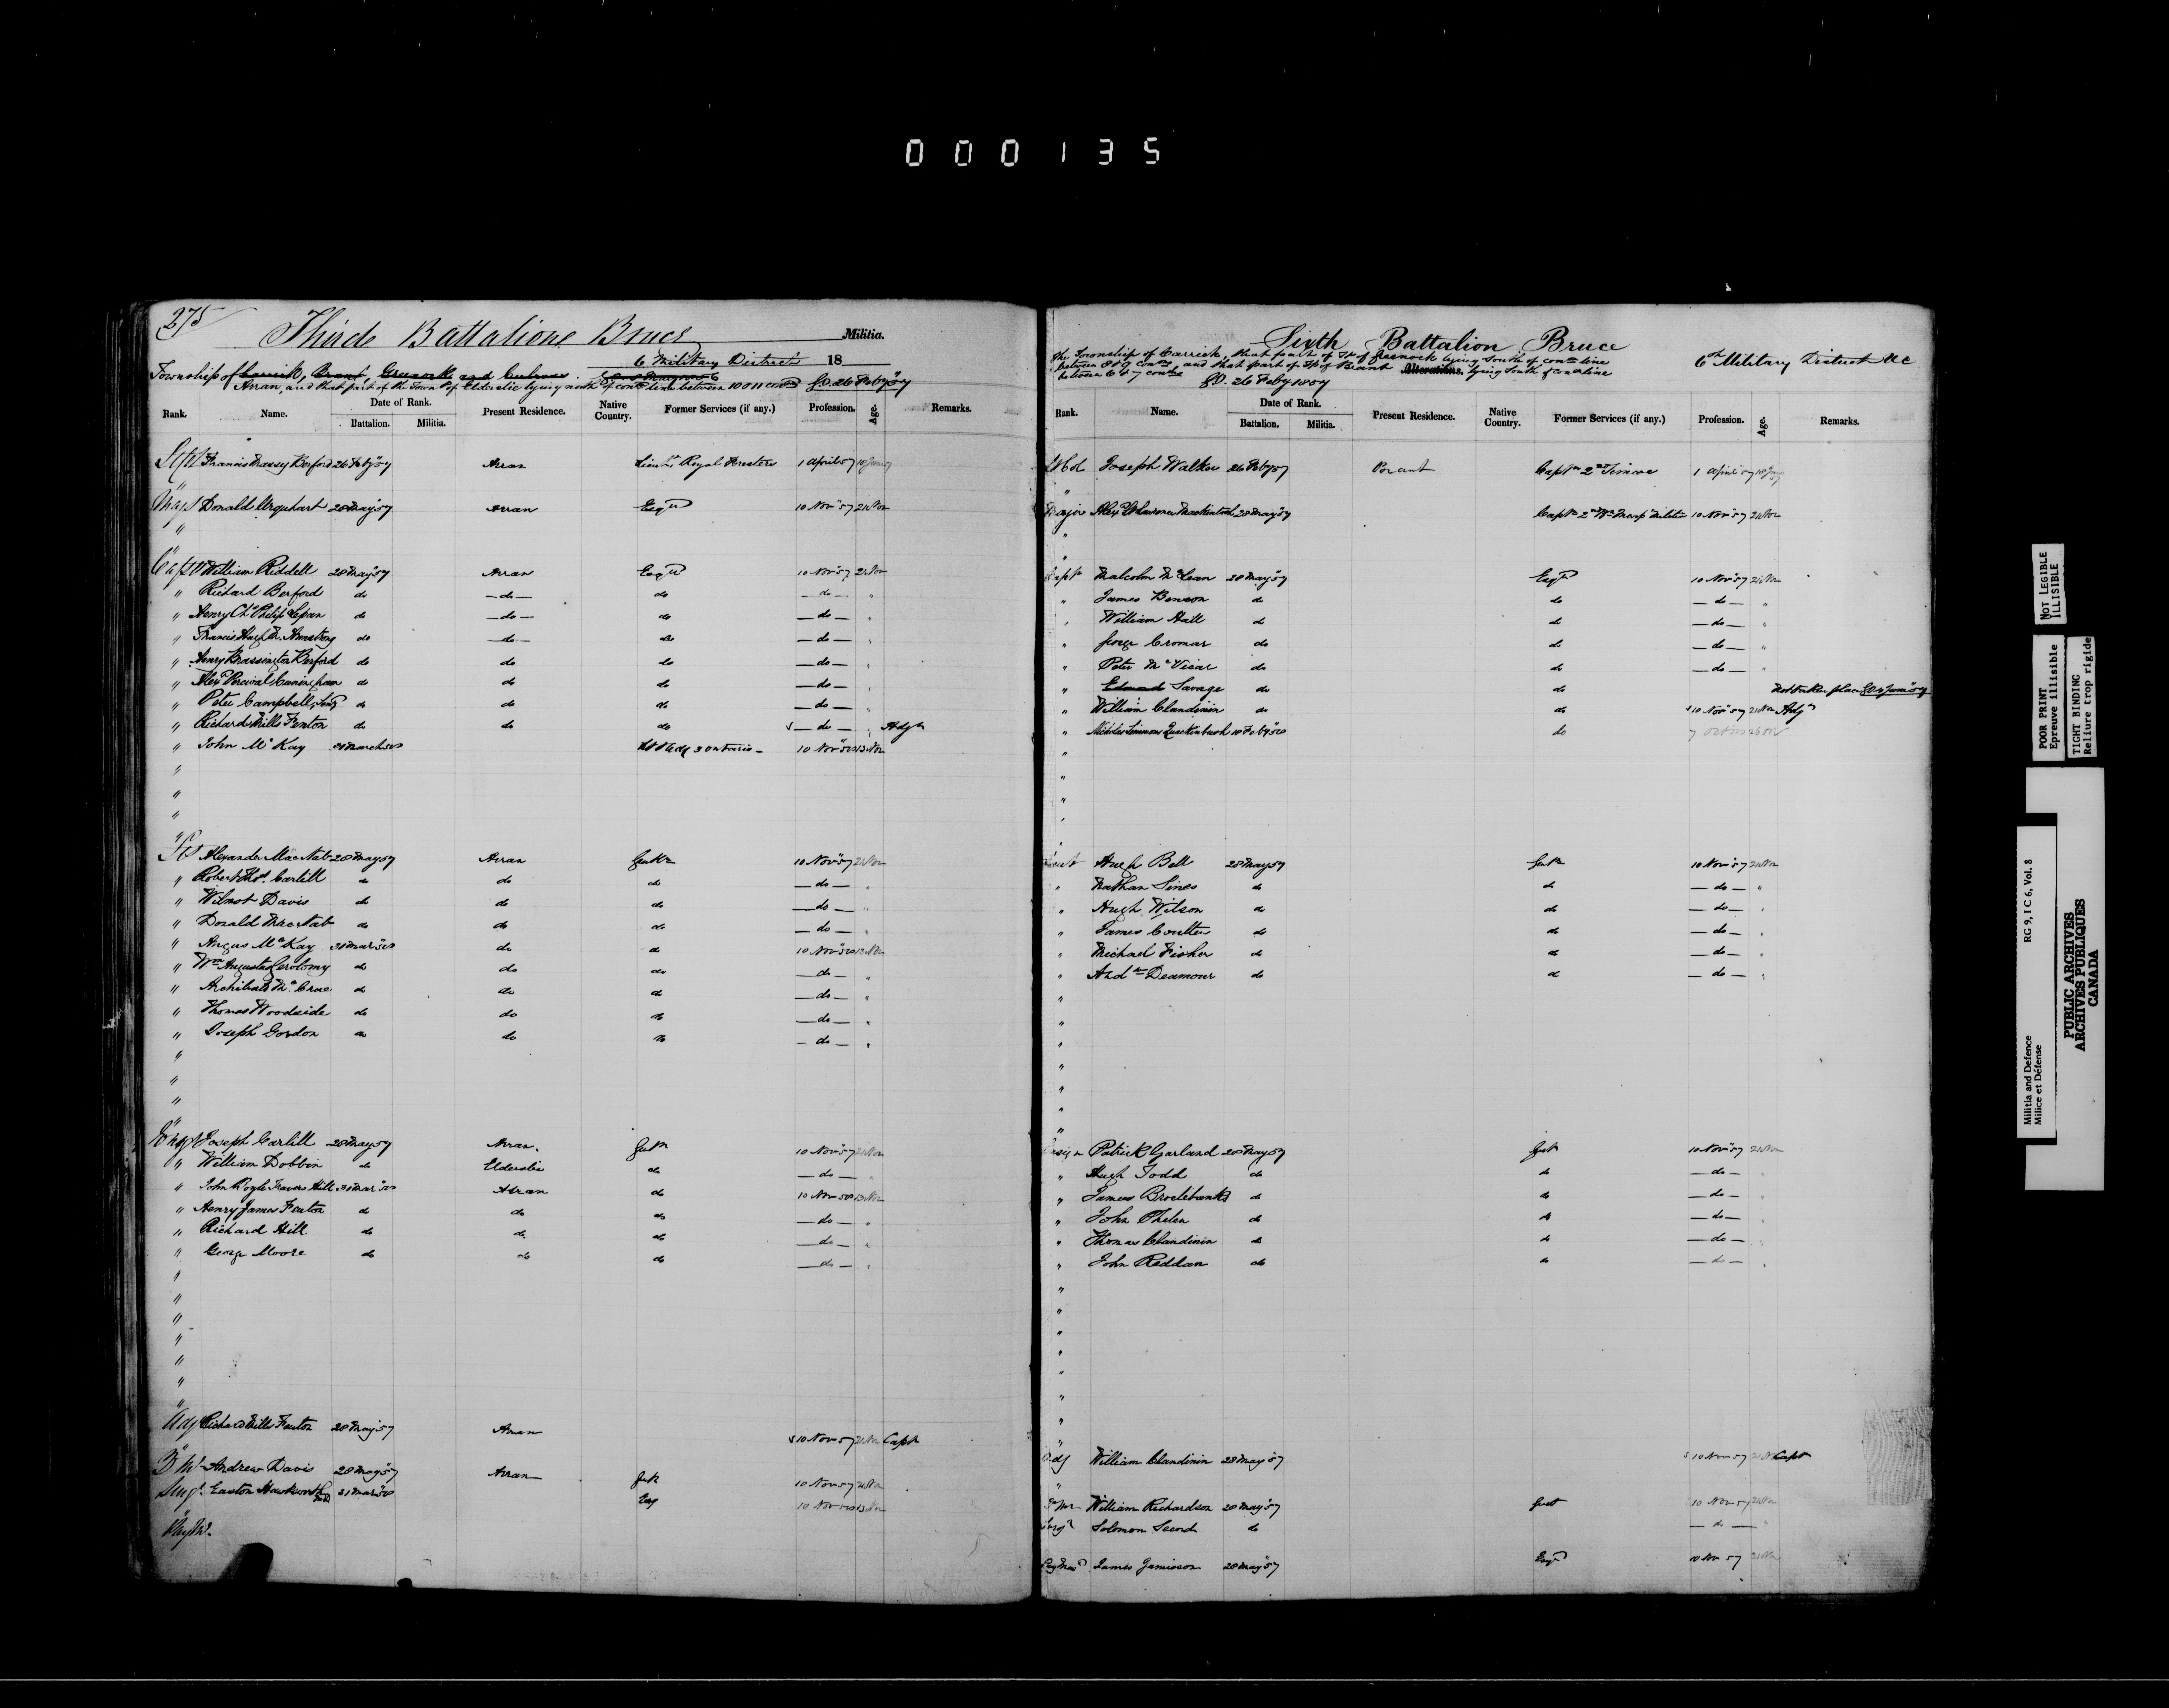 000135
275
Third Battalion Bruce Militia.
6 Military District 18
Township of Carrick, Brant, Greenock and Culross.
Arran, and that part of the Township of Elderslie lying north of conn line between 10 & 11 cons G.O. 26 Feby 57
Rank. Name. Date of Rank. Battalion. Militia. Present Residence. Native Country. Former Services (if any.) Profession. Age. Remarks.
Lt Col Francis Massy Berford 26 Feby 57 Arran Lieut Royal Foresters 1 April 57
"
Majr Donald Urquhart 28 May 57 Arran Esqr 10 Nov 57 21 Nov
"
"
Capt William Riddell 28 May 57 Arran Esqr 10 Nov 57 21 Nov
" Richard Berford do — do — do — do — "
" Henry Chs Philip Lepan do — do — do — do — "
" Francis Armstrong do — do — do — do — "
" Henry Massington Berford do do do — do — "
" Alexr Percival Cuningham do do do — do — "
" Peter Campbell, do do do — do — "
" Richard Mills Fenton do do do — do — " Adjt
" John McKay 31 March 58 10 Nov 58 13 Nov
"
"
"
"
Lt Alexander MacNab 28 May 57 Arran Gentn 10 Nov 57 21 Nov
" Robert Thos. Carlill do do do — do — "
" Wilmot Davis do do do — do — "
" Donald MacNab do do do — do — "
" Angus McKay 31 Mar 58 do do 10 Nov 58 13 Nov
" Wm Augustus Gerolomy do do do — do — "
" Archibald McCrae do do do — do — "
" Thomas Woodside do do do — do — "
" Joseph Gordon do do do — do — "
"
"
"
"
Ensgn Joseph Carlill 28 May 57 Arran. Gentn 10 Nov 57 21 Nov
" William Dobbin do Elderslie do — do — "
" John Boyle Travers Hill 31 Mar 58 Arran do 10 Nov 58 13 Nov
" Henry James Fenton do do do — do — "
" Richard Hill do do do — do — "
" George Moore do do do — do — "
"
"
"
"
"
"
"
Adj Richard Mills Fenton 28 May 57 Arran 10 Nov 57 21 Nov Capt
"
Q M Andrew Davis 28 May 57 Arran Gent 10 Nov 57 21 Nov
Surgn Easton Hawksworth 31 Mar 58 Esq 10 Nov 58 13 Nov
"
Pay Mr.
Sixth Battalion Bruce
The Township of Carrick, that part of Tp of Greenock lying South of conn line
between 8 & 9 cons, and that part of Tp of Brant Alterations. lying South of conn line
between 6 & 7 cons
G.O. 26 Feby 1857
6th Military District UC
Rank. Name. Date of Rank. Battalion. Militia. Present Residence. Native Country. Former Services (if any.) Profession. Age. Remarks.
Lt Col Joseph Walker 26 Feby 57 Brant Captn 2nd Simcoe 1 April 57
"
Major Alexr Mackintosh 28 May 57 Captn 2nd 10 Nov 57 21 Nov
"
"
Capt Malcolm McLean 28 May 57 Esqr 10 Nov 57 21 Nov
" James Benson do do — do — "
" William Hall do do — do — "
" George Cromar do do — do — "
" Peter McVicar do do — do — "
" Edmund Savage do do
" William Clandinin do do 10 Nov 57 21 Nov Adjt
" Nicholas Simmons Quackenbush 18 Feby 58 do
"
"
"
"
Lieut Hugh Bell 28 May 57 Gentn 10 Nov 57 21 Nov
" Nathan Sines do do — do — "
" Hugh Wilson do do — do — "
" James Coulter do do — do — "
" Michael Fisher do do — do — "
" Andw Deamour do do — do — "
"
"
"
"
"
"
"
Ensign Patrick Garland 28 May 57 Gent 10 Nov 57 21 Nov
" Hugh Todd do do — do — "
" James Brocklebanks do do — do — "
" John Phelan do do — do — "
" Thomas Clandinin do do — do — "
" John Reddan do do — do — "
"
"
"
"
"
"
"
"
Adj William Clandinin 28 May 57 10 Nov 57 21 Nov Capt
"
Qr Mr William Richardson 28 May 57 Gent 10 Nov 57 21 Nov
Surgn Solomon Secord do — do — "
Pay Mas James Jamieson 28 May 57 Esqr 10 Nov 57 21 Nov
NOT LEGIBLE
ILLISIBLE
POOR PRINT
Epreuve illisible
TIGHT BINDING
Reliure trop rigide
Militia and Defence
Milice et Défense
RG 9, I C 6, Vol. 8
PUBLIC ARCHIVES
ARCHIVES PUBLIQUES
CANADA